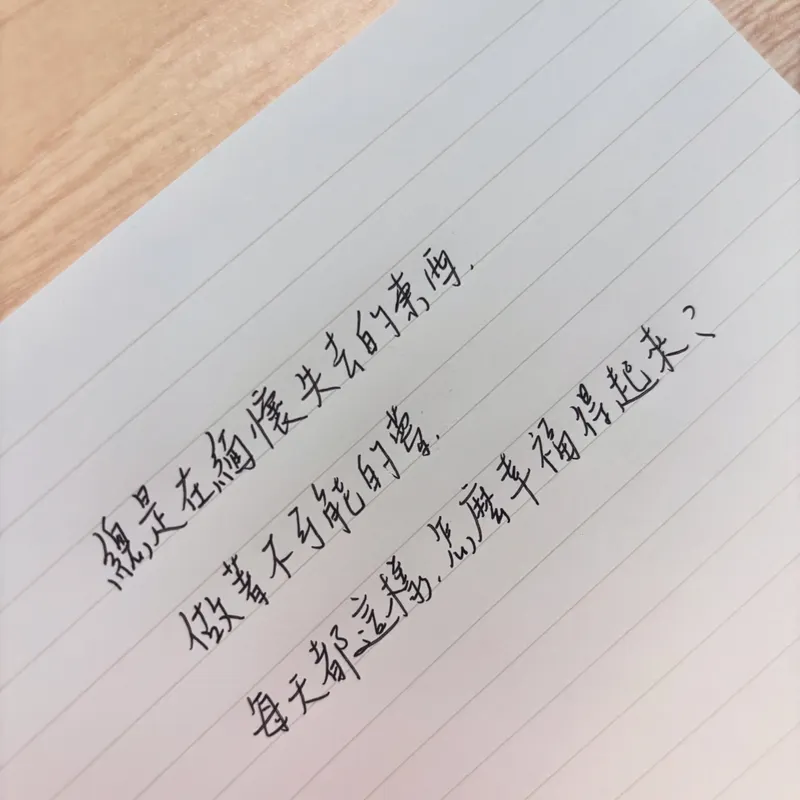 總是在緬懷失去的東西.
做著不可能的夢.
每天都這樣.怎麼幸福得起來?